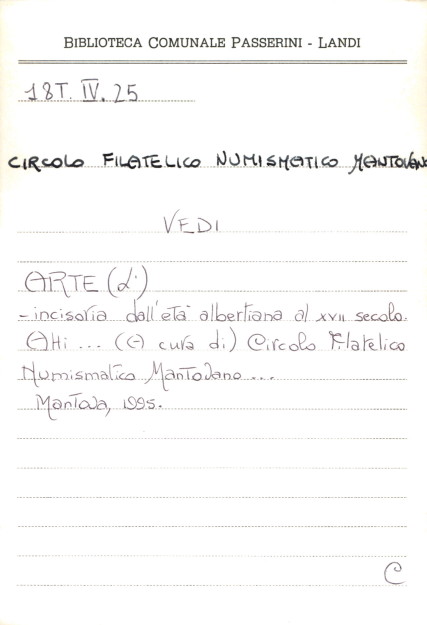 BIBLIOTECA COMUNALE PASSERINI - LANDI
18T. IV. 25
CIRCOLO FILATELICO NUMISMATICO MANTOVANO
VEDI
ARTE (L')
- incisoria dall'età albertiana al XVII secolo.
Atti ... (A cura di) Circolo Filatelico
Numismatico Mantovano ...
Mantova, 1995.
C